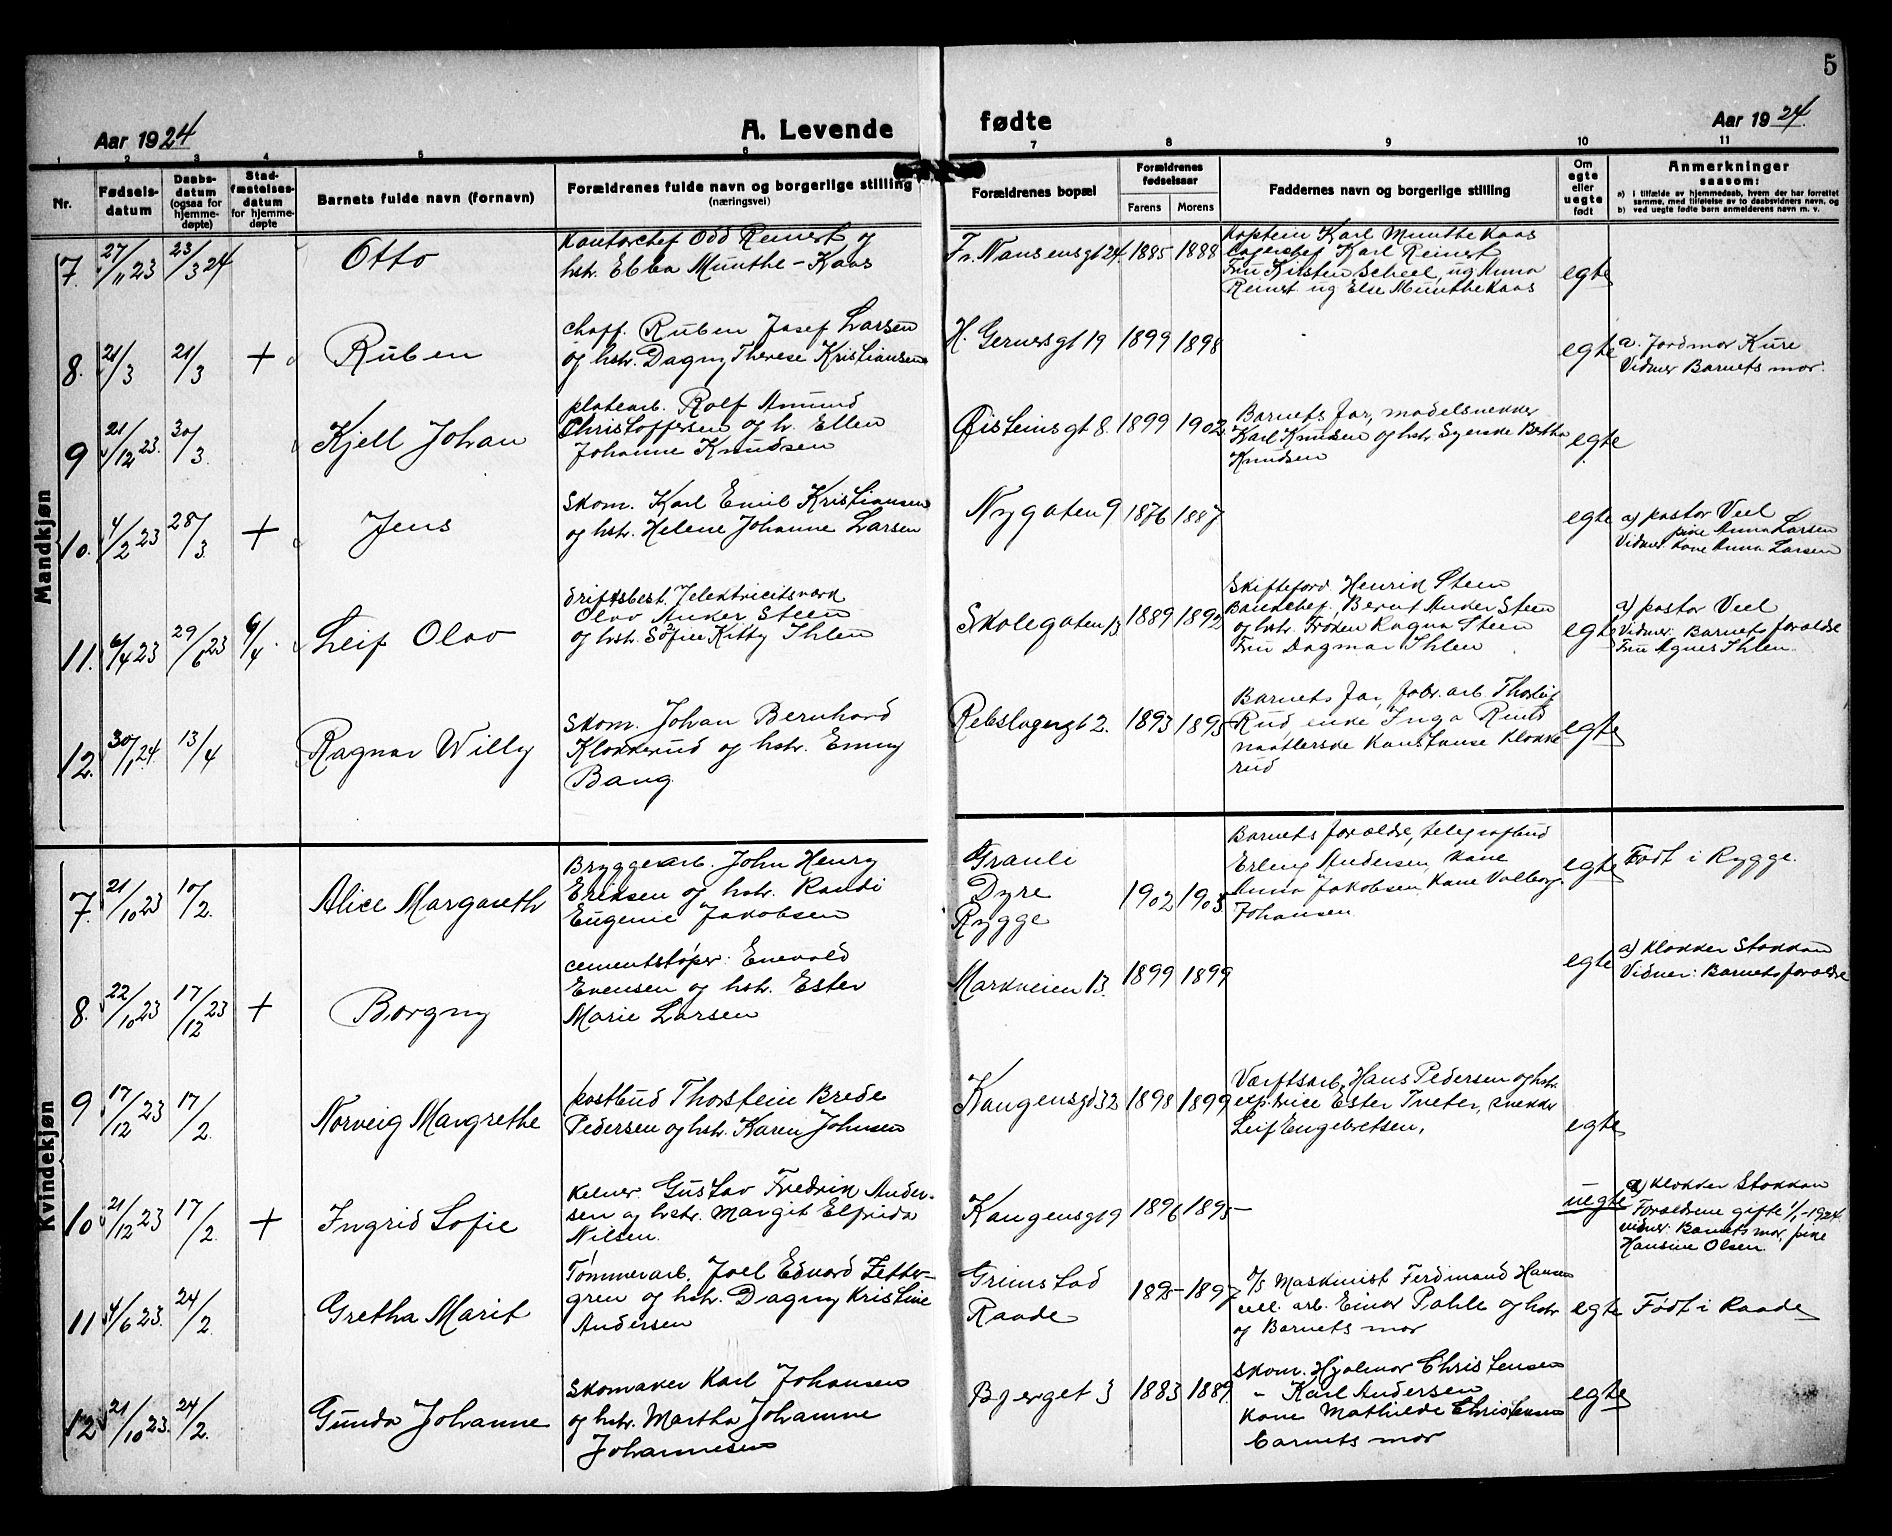 5
Aar 1924
A. Levende fødte
Aar 1924
1 2 3 4 5 6 7 8 9 10 11
Nr.
Fødsels-
datum
Daabs-
datum
(ogsaa for
hjemme-
døpte)
Stad-
fæstelses-
datum
for hjemme-
døpte
Barnets fulde navn (fornavn)
Forældrenes fulde navn og borgerlige stilling
(næringsvei)
Forældrenes bopæl
Forældrenes
fødselsaar
Farens Morens
Faddernes navn og borgerlige stilling
Om
egte
eller
uegte
født
Anmerkninger
saasom:
a) i tilfælde av hjemmedaab, hvem der har forrettet
samme, med tilføielse av to daabsvidners navn, og
b) ved uegte fødte barn anmelderens navn m. v.
Mandkjøn
7. 27/11 23 23/3 24 Otto
Kontorchef Odd Reinert og
hstr. Ebba Munthe-Kaas
Fr. Nansensgt 24. 1885 1888
Kaptein Karl Munthe Kaas
Karl Reinert
Fru Kirsten Scheel, ug Anna
Reinert ug Else Munthe Kaas
egte
8. 21/3 21/3 + Ruben
chaff. Ruben Josef Larsen
og hstr. Dagny Therese Kristiansen
H. Gernersgt 19 1899 1898
egte
a. Jordmor Kure
Vidner Barnets mor.
9 21/12 23. 30/3. Kjell Johan
platearb. Rolf Amund
Christoffersen og h. Ellen
Johanne Knudsen
Øisteinsgt 8. 1899 1902
Barnets far, modelsnekker
Karl Knudsen og hstr Syenske Bertha
Knudsen
egte
10. 4/2 23 28/3 + Jens
Skom. Karl Emil Kristiansen
og hstr. Helene Johanne Larsen
Nygaten 9 1876 1887
egte
a) pastor Veel
pike Anna Larsen
Vidner: Kone Anna Larsen
11. 6/4 23 29/6 23 6/4. Leif Olav
driftsbest. v/elektricitsværk
Olav Anker Steen
og hstr. Sofie Kitty Ihlen
Skolegaten 13 1889 1892
Skifteford. Henrik Steen
Bankchef, Bernt Anker Steen
og hstr. Frøken Ragna Steen
Fru Dagmar Ihlen
egte
a) pastor Veel
Vidner: Barnets forældre
Fru Agnes Ihlen.
12. 30/1 24. 13/4 Ragnar Willy
Skom. Johan Bernhard
Klokkerud og hstr. Emmy
Bang.
Rebslagergt 2. 1893 1895
Barnets far, fabr. arb. Thorleif
Rud, enke Inga Rud
Konstanse Klokke
rud
egte
Kvindekjøn
7. 21/10 23 10/2. Alice Margareth
Bryggearb. John Henry
Eriksen og hstr. Randi
Eugenie Jakobsen
Grauli
Dyre
Rygge
1902 1905
Barnets forældre, telegrafbud
Erling Andersen, kone
Anna Jakobsen kone Valborg
Johansen
egte
Født i Rygge.
8. 22/10 23 17/12 23 + Borgny
cementstøper: Enevald
Evensen og hstr. Ester
Marie Larsen
Markveien 13. 1899 1899
egte
a) klokker Stokkan
Vidner: Barnets forældre
9 17/12 23 17/2. Norveig Margrethe
postbud Thorstein Brede
Pedersen og hstr. Karen Johnsen
Kongensgt 32 1898 1899
Værftsarb. Hans Pedersen og hstr.
exp.trice Ester Tveter, snekker
Leif Engebretsen,
egte
10 21/12 23 17/2. + Ingrid Sofie
Kelner Gustav Fredrik Ander-
sen og hstr. Margit Elfrida
Nilsen.
Kongensgt 9 1896 1895
uegte
a) klokker Stokkan
Forældrene gifte 1/1-1924.
vidner: Barnets mor, pike
Hansine Olsen.
11 4/6 23. 24/2. Gretha Marit
Tømmerarb. Joel Edvard Zetter-
gren og hstr. Dagny Kristine
Andersen
Grimstad
Raade
1895 1897
Maskinist Ferdinand Hansen
arb. Einar Pahle og hstr
og Barnets mor
egte
Født i Raade
12 21/10 23. 24/2. Gunda Johanne
Skomaker Karl Johansen
og hstr. Martha Johanne
Johannesen
Bjerget 3 1883 1889.
Skom. Hjalmar Christensen
" Karl Andersen
Kone Mathilde Christensen
barnets mor
egte